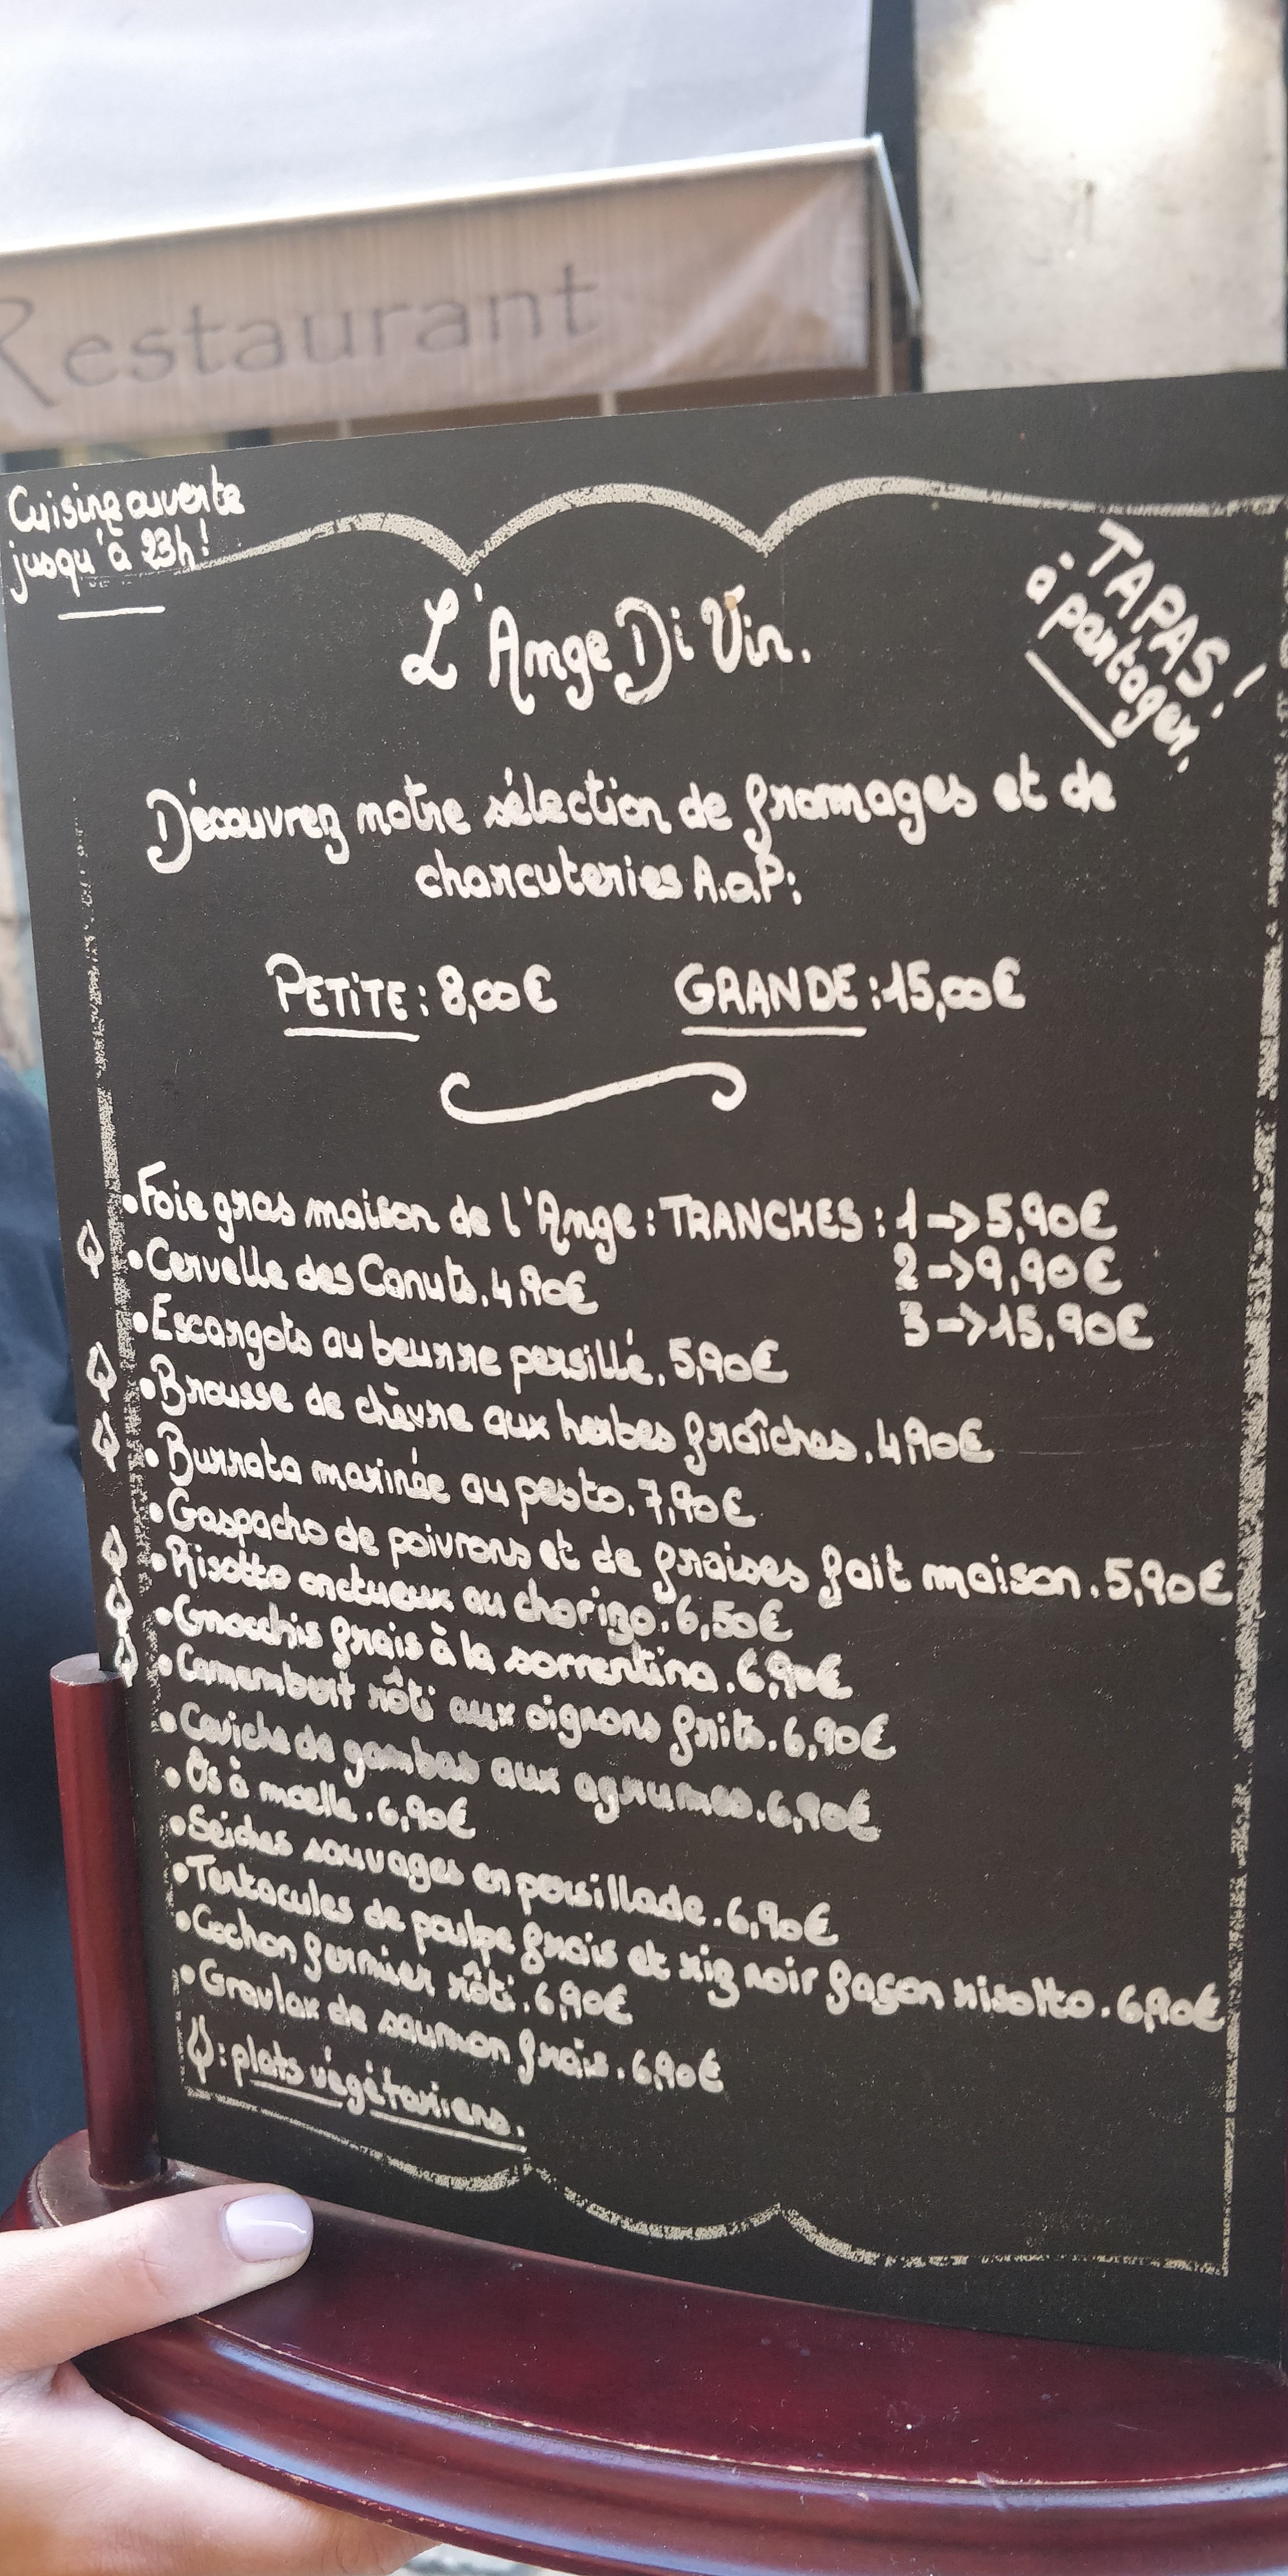 Restaurant
Cuisine ouverte
jusqu'à 23h!
TAPAS!
à partager!
L'Ange Di Vin.
Découvrez notre sélection de fromages et de
charcuteries A.o.P:
PETITE: 8,00€ GRANDE: 15,00€
•Foie gras maison de l'Ange: TRANCHES: 1->5,90€
2->9,90€
3->15,90€
•Cervelle des Canuts. 4,90€
•Escargots au beurre persillé. 5,90€
•Brousse de chèvre aux herbes fraîches. 4,90€
•Burrata marinée au pesto. 7,90€
•Gaspacho de poivrons et de fraises fait maison. 5,90€
•Risotto onctueux au chorizo. 6,50€
•Gnocchis frais à la sorrentina. 6,90€
•Camembert rôti aux oignons frits. 6,90€
•Ceviche de gambas aux agrumes. 6,90€
•Os à moelle. 6,90€
•Seiches sauvages en persillade. 6,90€
•Tentacules de poulpe frais et riz noir façon risotto. 6,90€
•Cochon fermier rôti. 6,90€
•Gravlax de saumon frais. 6,90€
: plats végétariens.